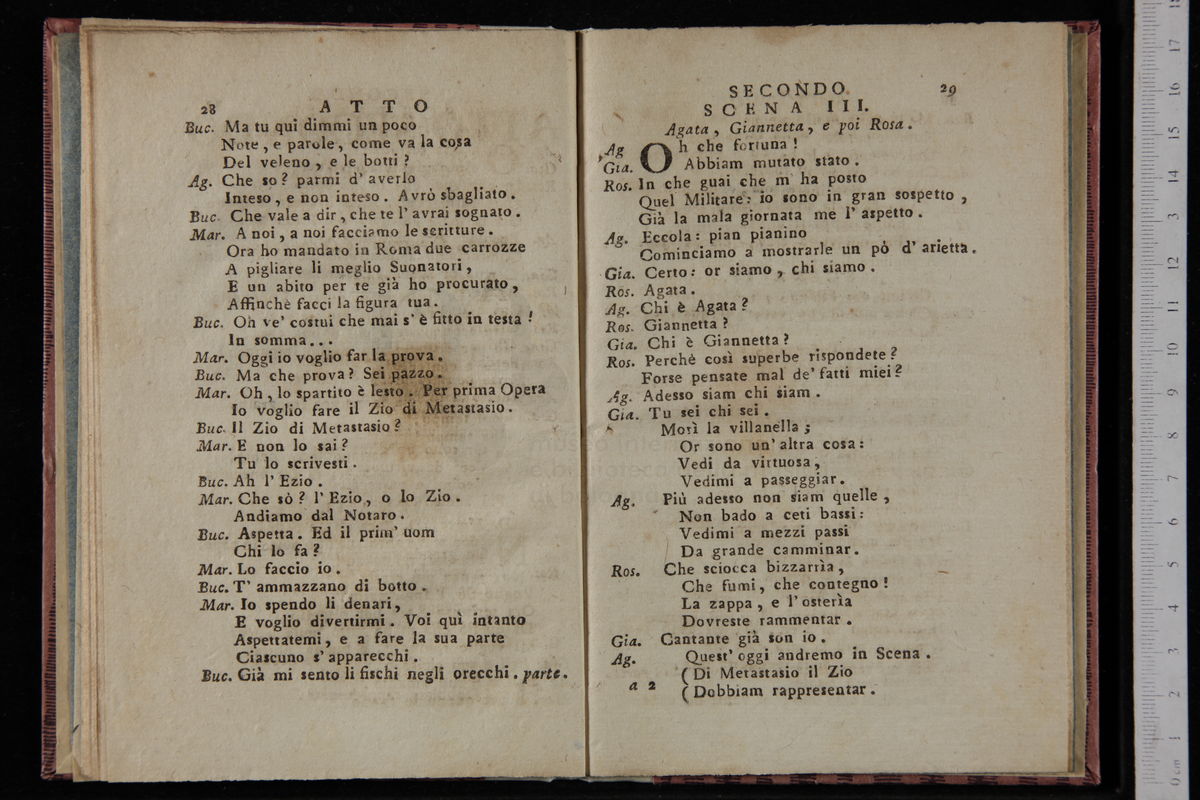 28 ATTO
Buc. Ma tu quì dimmi un poco
Note, e parole, come va la cosa
Del veleno, e le botti?
Ag. Che so? parmi d' averlo
Inteso, e non inteso. Avrò sbagliato.
Buc. Che vale a dir, che te l' avrai sognato.
Mar. A noi, a noi facciamo le scritture.
Ora ho mandato in Roma due carrozze
A pigliare li meglio Suonatori,
E un abito per te già ho procurato,
Affinchè facci la figura tua.
Buc. Oh ve' costui che mai s' è fitto in testa!
In somma...
Mar. Oggi io voglio far la prova.
Buc. Ma che prova? Sei pazzo.
Mar. Oh, lo spartito è lesto. Per prima Opera
Io voglio fare il Zio di Metastasio.
Buc. Il Zio di Metastasio?
Mar. E non lo sai?
Tu lo scrivesti.
Buc. Ah l' Ezio.
Mar. Che sò? l' Ezio, o lo Zio.
Andiamo dal Notaro.
Buc. Aspetta. Ed il prim' uom
Chi lo fa?
Mar. Lo faccio io.
Buc. T' ammazzano di botto.
Mar. Io spendo li denari,
E voglio divertirmi. Voi quì intanto
Aspettatemi, e a fare la sua parte
Ciascuno s' apparecchi.
Buc. Già mi sento li fischi negli orecchi. parte.
SECONDO. 29
SCENA III.
Agata, Giannetta, e poi Rosa.
Ag Oh che fortuna!
Gia. Abbiam mutato stato.
Ros. In che guai che m' ha posto
Quel Militare: io sono in gran sospetto,
Già la mala giornata me l' aspetto.
Ag. Eccola: pian pianino
Cominciamo a mostrarle un pò d' arietta.
Gia. Certo: or siamo, chi siamo.
Ros. Agata.
Ag. Chi è Agata?
Ros. Giannetta?
Gia. Chi è Giannetta?
Ros. Perchè così superbe rispondete?
Forse pensate mal de' fatti miei?
Ag. Adesso siam chi siam.
Gia. Tu sei chi sei.
Morì la villanella;
Or sono un' altra cosa:
Vedi da virtuosa,
Vedimi a passeggiar.
Ag. Più adesso non siam quelle,
Non bado a ceti bassi:
Vedimi a mezzi passi
Da grande camminar.
Ros. Che sciocca bizzarrìa,
Che fumi, che contegno!
La zappa, e l' osterìa
Dovreste rammentar.
Gia. Cantante già son io.
Ag. Quest' oggi andremo in Scena.
( Di Metastasio il Zio
a 2 ( Dobbiam rappresentar.